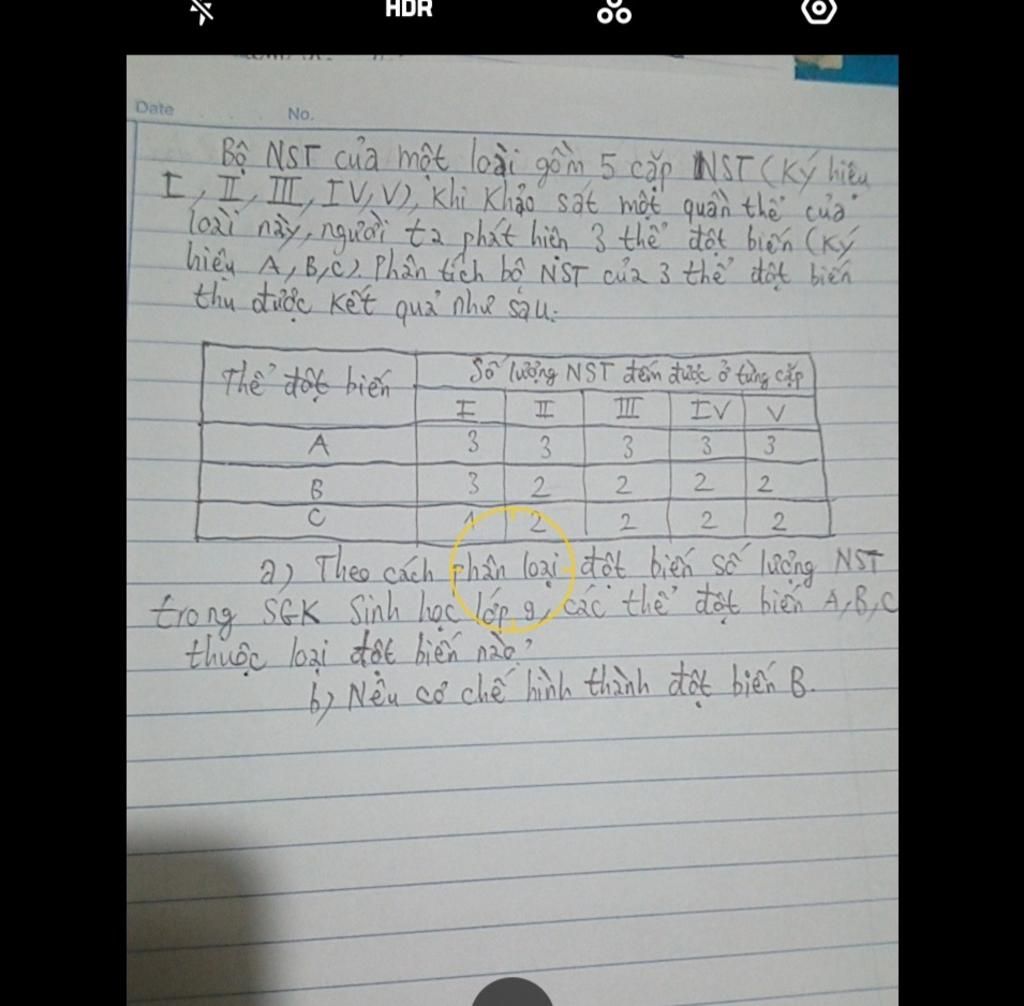 HDR
Date No.
Bộ NST của một loài gồm 5 cặp NST (Ký hiệu
I, II, III, IV, V), Khi Khảo sát một quần thể của
loài này, người ta phát hiện 3 thể đột biến (Ký
hiệu A, B, C). Phân tích bộ NST của 3 thể đột biến
thu được Kết quả như sau:
Thể đột biến Số lượng NST đếm được ở từng cặp
I II III IV V
A 3 3 3 3 3
B 3 2 2 2 2
C 1 2 2 2 2
a) Theo cách phân loại đột biến số lượng NST
trong SGK Sinh học lớp 9, các thể đột biến A, B, C
thuộc loại đột biến nào?
b) Nêu cơ chế hình thành đột biến B.